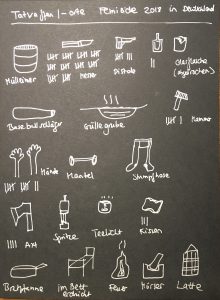 Tatwaffen / -orte Femizide 2018 in Deutschland
Mülleimer
Messer
Pistole
Glasflasche
Baseballschläger
Güllegrube
Hammer
Hände
Mantel
Strumpfhose
Axt
Spritze
Teelicht
Kissen
Bratpfanne
im Bett
erstickt
Feuer
Mörser
Latte